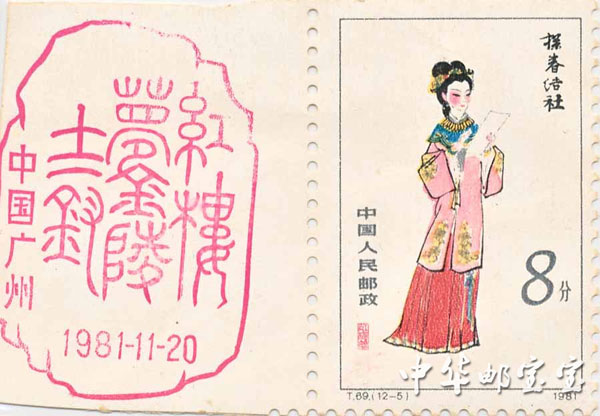 紅樓
夢金陵
十二釵
中国广州
1981-11-20
探春结社
中国人民邮政
8分
T.69.(12-5)
1981
中华邮宝家